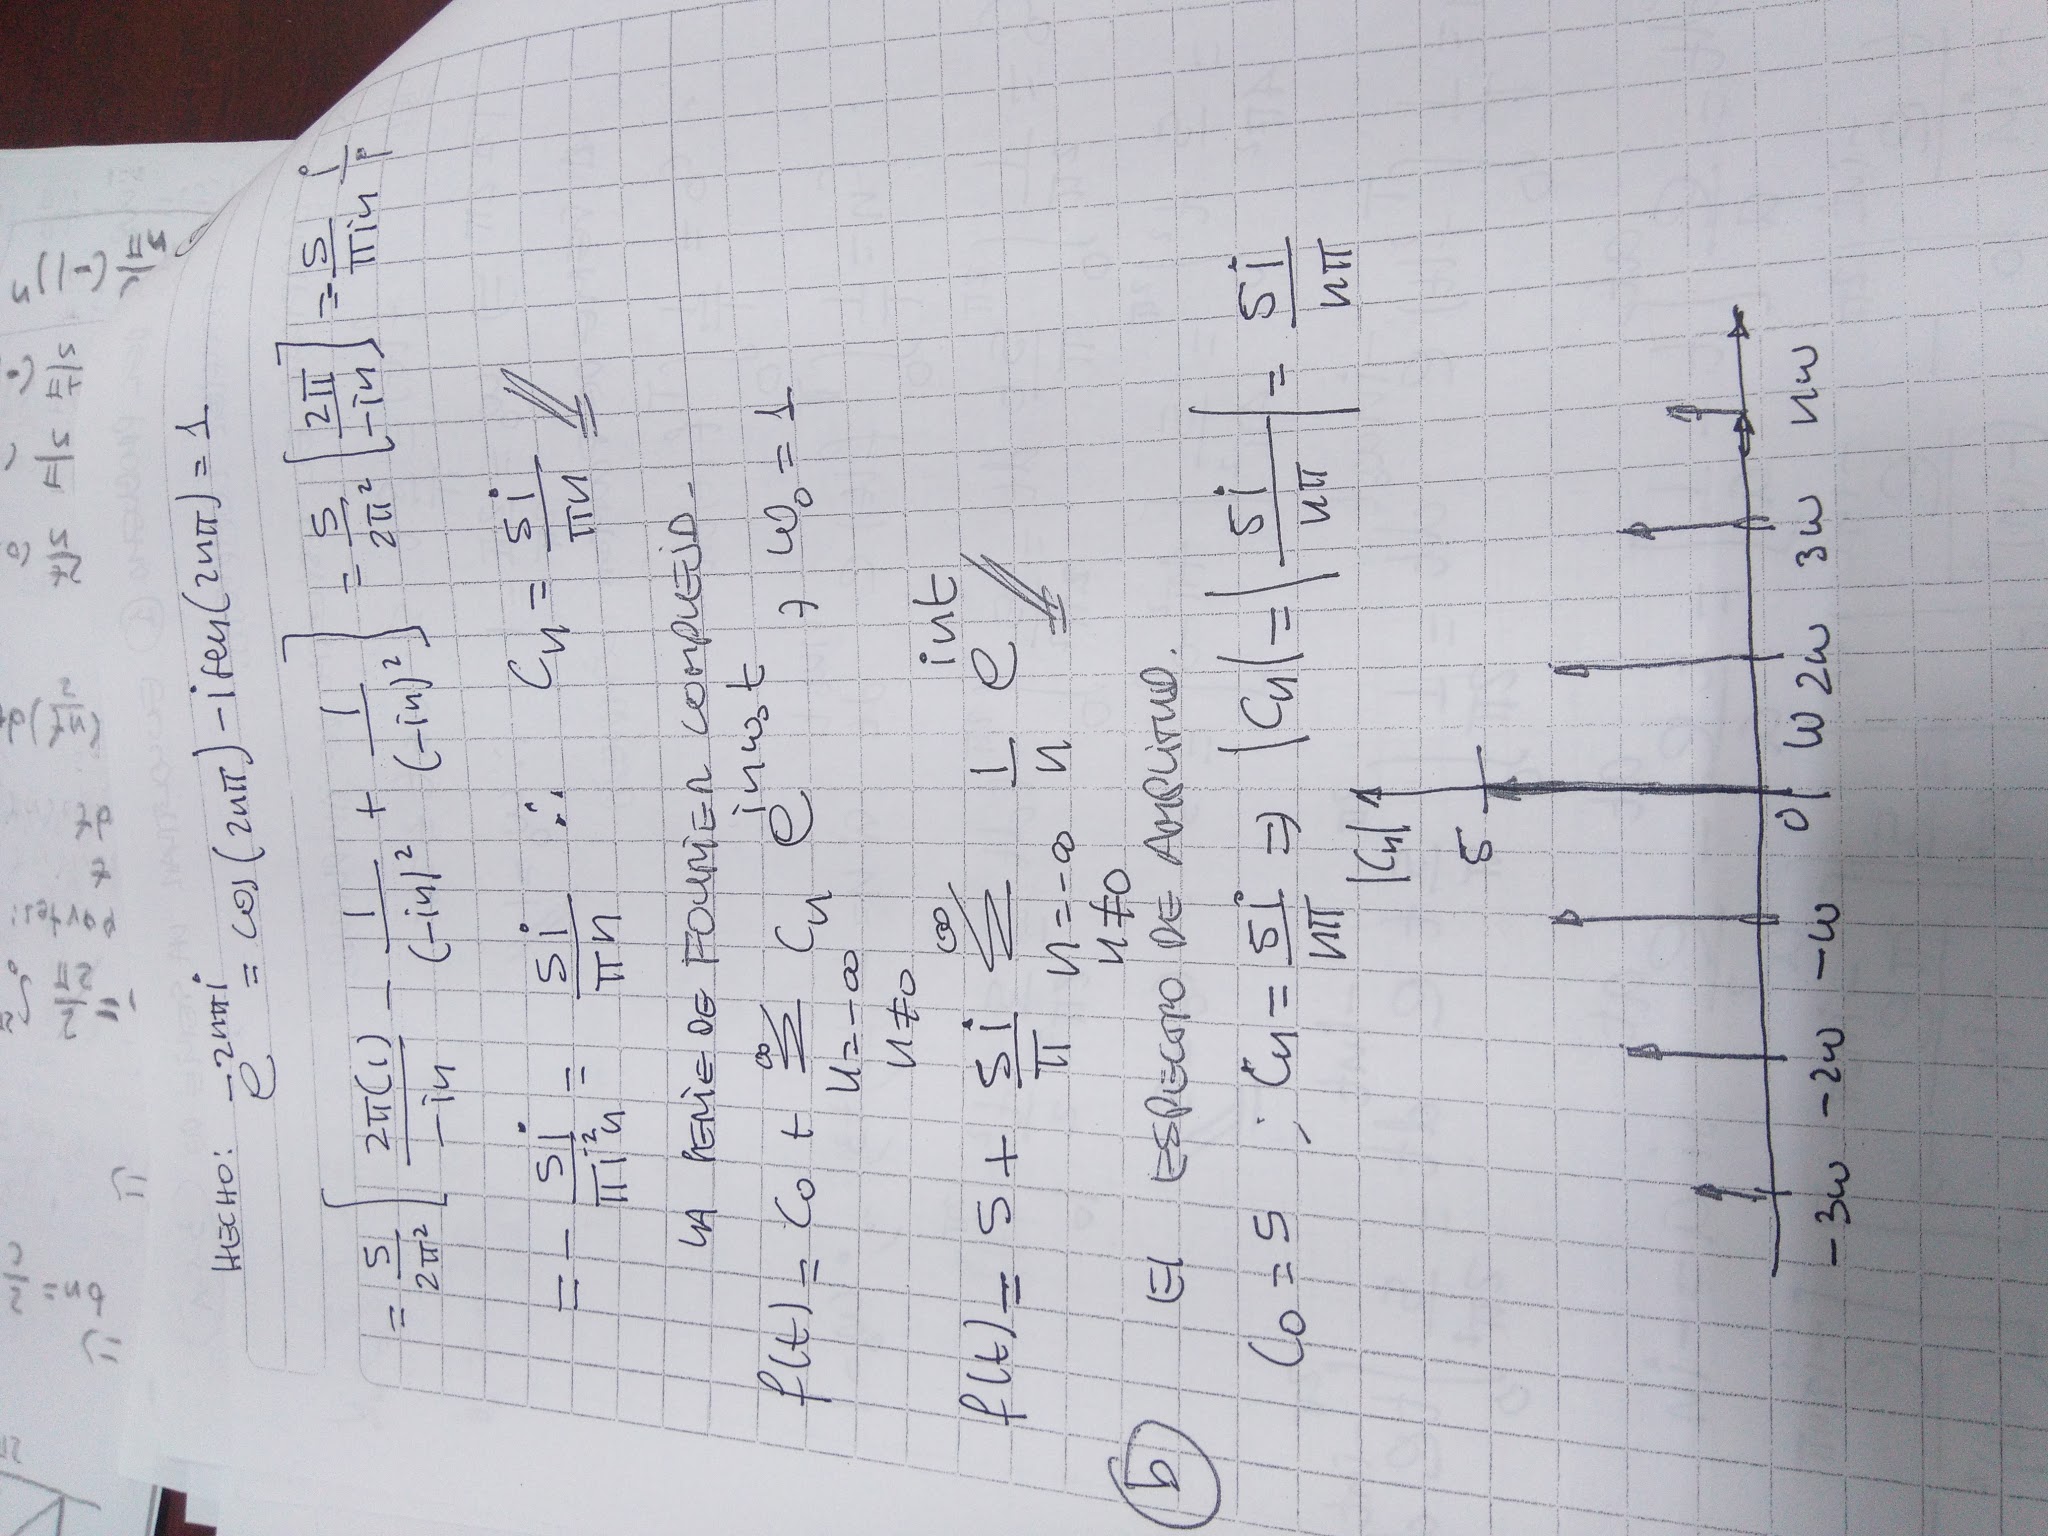 bn = 2/
=)
=)
= 2/2π ∫
partes:
t
dt
2t/n
π/n
HECHO: e^{-2nπi} = cos(2nπ) - i sen(2nπ) = 1
= 5/2π² [ 2π(1)/-in - 1/(-in)² + 1/(-in)² ] = 5/2π² [ 2π/-in ] = 5/πin i/i
= - 5i/πi²n = 5i/πn ∴ Cn = 5i/πn
LA SERIE DE FOURIER COMPLEJA.
f(t) = C₀ + ∑_{n=-∞, n≠0}^{∞} Cn e^{inω₀t} , ω₀ = 1
f(t) = 5 + 5i/π ∑_{n=-∞, n≠0}^{∞} 1/n e^{int}
b El ESPECTRO DE AMPLITUD.
C₀ = 5 ; Cn = 5i/nπ ⇒ |Cn| = |5i/nπ| = 5i/nπ
|Cn|
5
-3ω -2ω -ω 0 ω 2ω 3ω nω